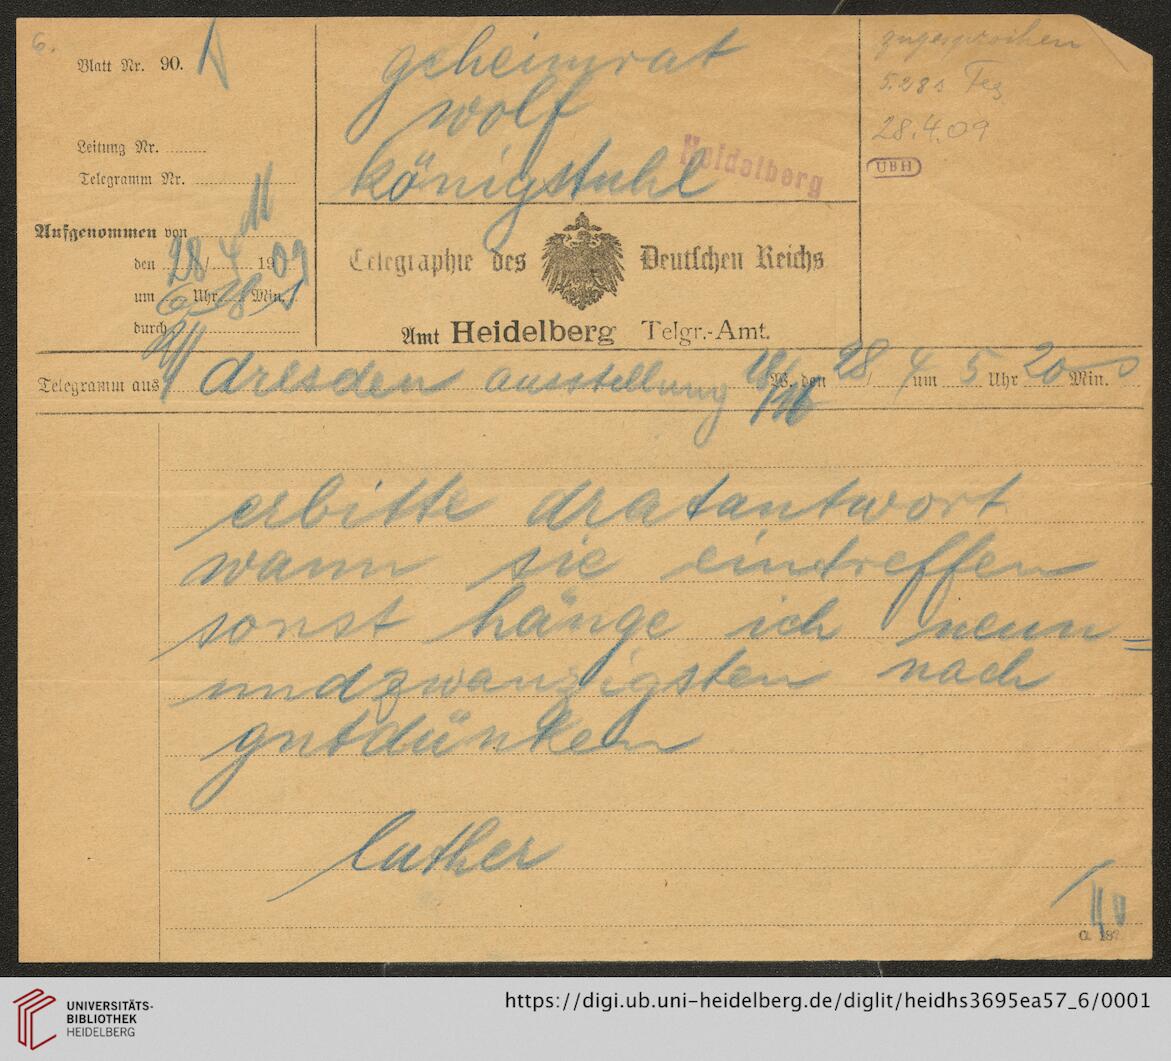 6.
Blatt Nr. 90.
Leitung Nr.
Telegramm Nr.
Aufgenommen von
den 28/4 1909
um 6 Uhr 38 Min. s
durch
geheimrat
wolf
königstuhl
Heidelberg
zugesprochen
5.28 s
28.4.09
UBH
Telegraphie des Deutschen Reichs
Amt Heidelberg Telgr.-Amt.
Telegramm aus dresden ausstellung W. den 28/4 um 5 Uhr 20 Min. s
erbitte dratantwort
wann sie eintreffen
sonst hänge ich neun=
undzwanzigsten nach
gutdünken
luther
C. 187.
UNIVERSITÄTS-
BIBLIOTHEK
HEIDELBERG
https://digi.ub.uni-heidelberg.de/diglit/heidhs3695ea57_6/0001